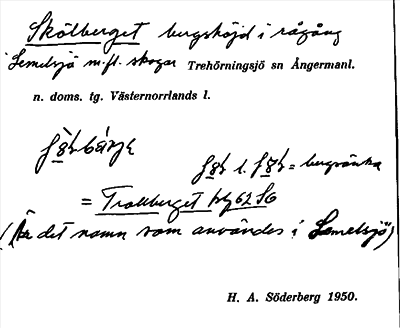 Skölberget bergshöjd i rågång
i Lemelsjö m.fl. skogar Trehörningsjö sn Ångermanl.
n. doms. tg. Västernorrlands l.
l. = bergsänka
= Trollberget blg 62 S6
(Är det namn som användes i Lemelsjö)
H. A. Söderberg 1950.